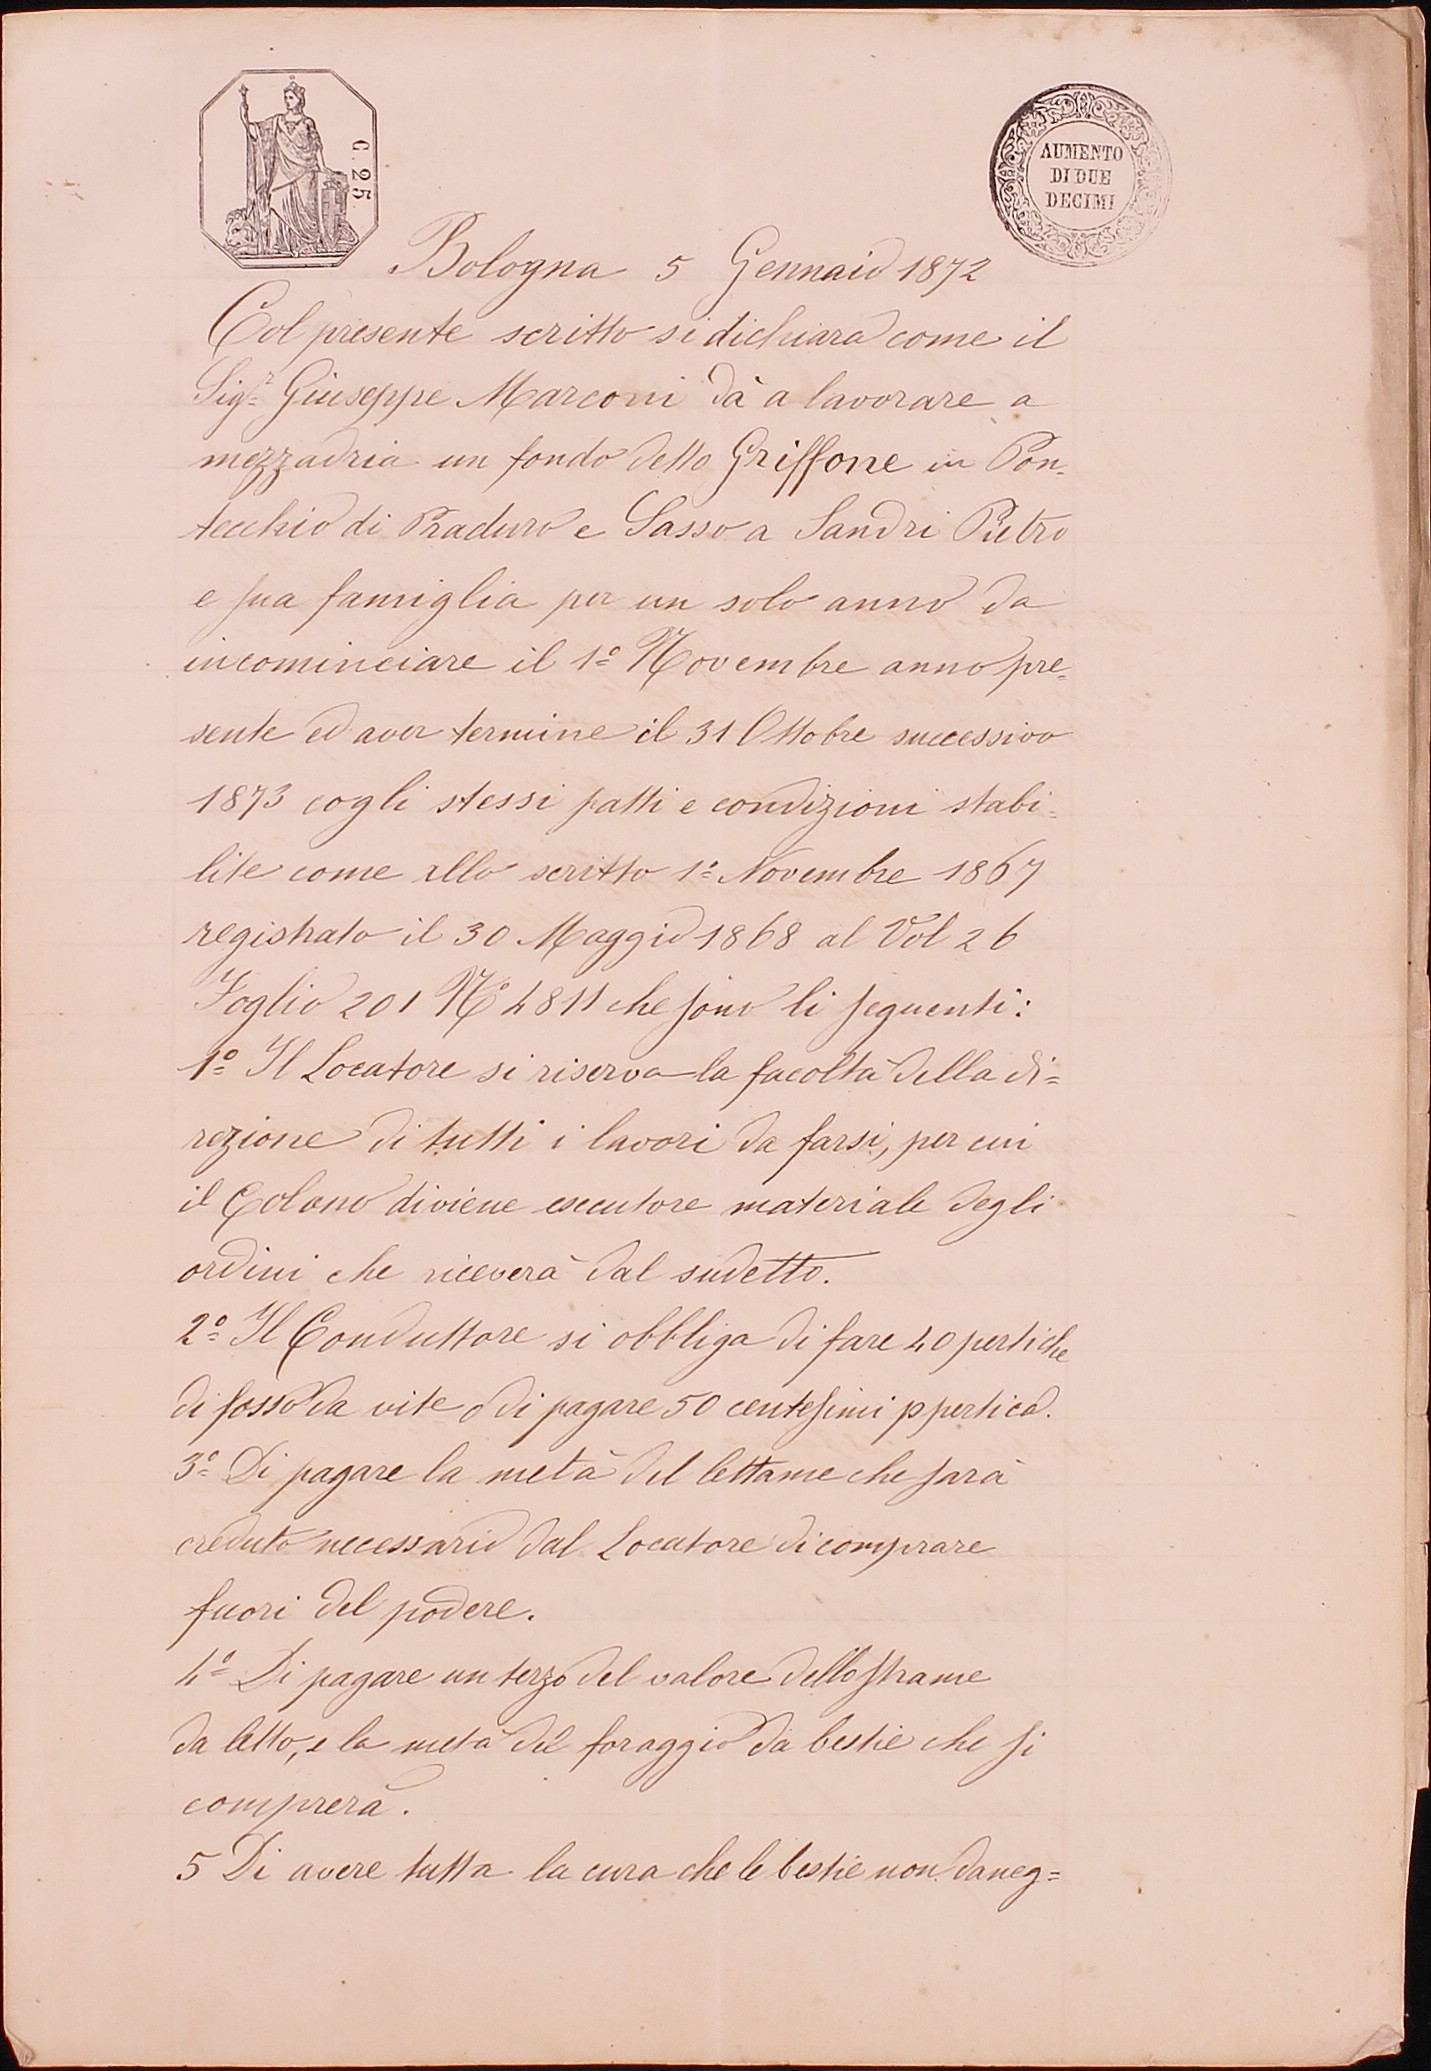 C. 25
AUMENTO
DI DUE
DECIMI
Bologna 5 Gennaio 1872
Col presente scritto si dichiara come il
Sigr. Giuseppe Marconi dà a lavorare a
mezzadria un fondo detto Griffone in Pon=
tecchio di Praduro e Sasso a Sandri Pietro
e sua famiglia per un solo anno da
incominciare il 1º Novembre anno pre=
sente ed aver termine il 31 Ottobre successivo
1873 cogli stessi patti e condizioni stabi=
lite come allo scritto 1º Novembre 1867
registrato il 30 Maggio 1868 al Vol 26
Foglio 201 Nº 4811 che sono li seguenti:
1º Il Locatore si riserva la facoltà della di=
rezione di tutti i lavori da farsi, per cui
il Colono diviene esecutore materiale degli
ordini che riceverà dal sudetto.
2º Il Conduttore si obbliga di fare 40 pertiche
di fosso da vite o di pagare 50 centesimi p pertica.
3º Di pagare la metà del lettame che sarà
creduto necessario dal Locatore di comprare
fuori del podere.
4º Di pagare un terzo del valore dello strame
da letto, e la metà del foraggio da bestie che si
comprerà.
5 Di avere tutta la cura che le bestie non daneg=